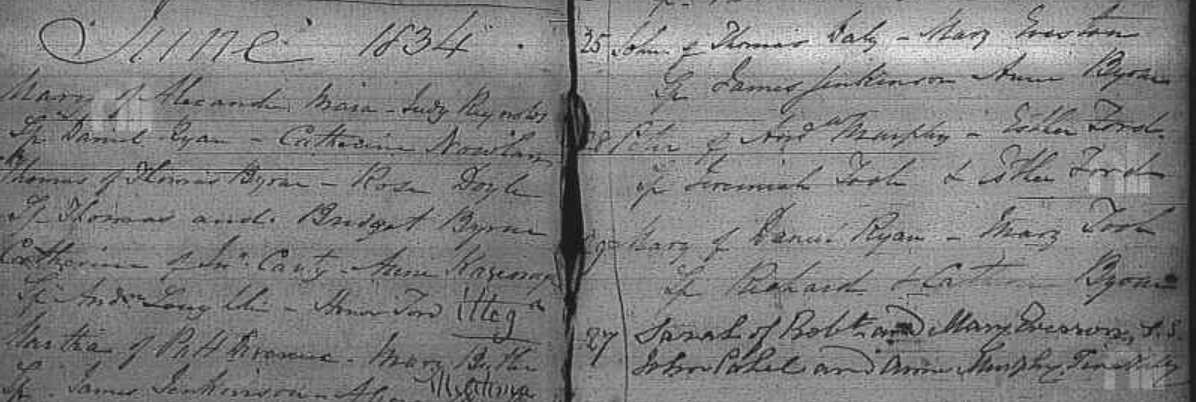 June 1834
Mary of Alexander - Judy Reynolds
Sp Daniel Ryan - Catherine Nowlan
Thomas of Thomas Byrne - Rose Doyle
Sp Thomas and Bridget Byrne
Catherine of Jno Canty - Anne
Sp Andw Loughlin - Honor Ford Illeg
Martha of Patt - Mary Butler
Sp James Jenkinson
25 John of Thomas Daly - Mary
Sp James Jenkinson Anne Byrne
Peter of Andw Murphy - Esther Ford
Sp Jeremiah Tool & Esther Ford
Mary of Daniel Ryan - Mary Tool
Sp Richard & Catherine Byrne
27 Sarah of Robt and Mary S.S.
John Cahel and Anne Murphy